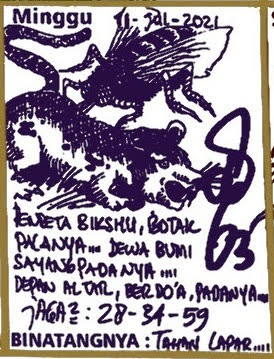 Minggu 11-JUL-2021
BIKSHU, BOTAK
PALANYA... DEWA BUMI
SAYANG PADANYA....
DEPAN ALTAR, BERDO'A, PADANYA....
JAGA2 : 28-34-59
BINATANGNYA : TAHAN LAPAR....